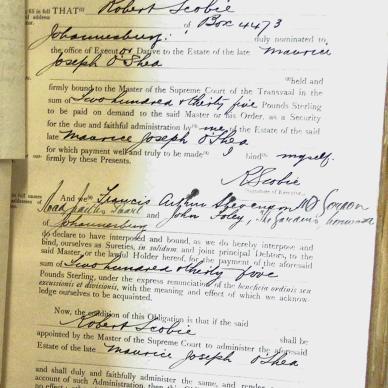 65 in full THAT Robert Scobie
address of Box 4473
Johannesburg: duly nominated to
the office of Executor Dative to the Estate of the late Maurice
Joseph O'Shea
held and
firmly bound to the Master of the Supreme Court of the Transvaal in the
sum of Two hundred & thirty five Pounds Sterling
to be paid on demand to the said Master or his Order, as a Security
for the due and faithful administration by me of the Estate of the said
late Maurice Joseph O'Shea
for which payment well and truly to be made I bind myself.
firmly by these Presents.
R Scobie
in full names And we Francis Stevenson
addresses of and John Foley,
of Johannesburg
do declare to have interposed and bound, as we do hereby interpose and
bind, ourselves as Sureties, in solidum and joint principal Debtors, to the
said Master, or the lawful Holder hereof, for the payment of the aforesaid
sum of Two hundred & thirty five
Pounds Sterling, under the express renunciation of the beneficia ordinis seu
excussionis et divisionis, with the meaning and effect of which we acknow-
ledge ourselves to be acquainted.
Now, the Condition of this Obligation is that if the said
Robert Scobie shall be
appointed by the Master of the Supreme Court to administer the aforesaid
Estate of the late Maurice Joseph O'Shea
and shall duly and faithfully administer the same, and render
account of such Administration, then this